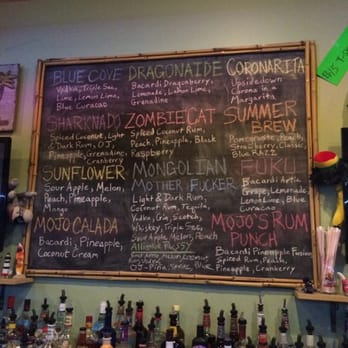 BLUE COVE
Vodka, Triple Sec,
Lime, Lemon Lime,
Blue Curacao
DRAGONAIDE
Bacardi Dragonberry,
Lemonade, Lemon Lime,
Grenadine
CORONARITA
Upsidedown
Corona in a
Margarita
SHARKNADO
Spiced Coconut, Light
& Dark Rum, OJ,
Pineapple, Grenadine,
Cranberry
ZOMBIECAT
Spiced Coconut Rum,
Peach, Pineapple, Black
Raspberry
SUMMER
BREW
Pomegranate, Peach,
Strawberry, Classic,
Blue RAZZ
SUNFLOWER
Sour Apple, Melon,
Peach, Pineapple,
Mango
MONGOLIAN
MOTHER FUCKER
Light & Dark Rum,
Coconut Rum, Tequila,
Vodka, Gin, Scotch,
Whiskey, Triple Sec,
Sour Apple, Melon, Peach
OJ, Pina,
Blue
Bacardi Artic
Grape, Lemonade
Lemon Lime, Blue
Curacao
MOJO CALADA
Bacardi, Pineapple,
Coconut Cream
MOJO'S RUM
PUNCH
Bacardi Pineapple Fusion,
Spiced Rum, Peach,
Pineapple, Cranberry